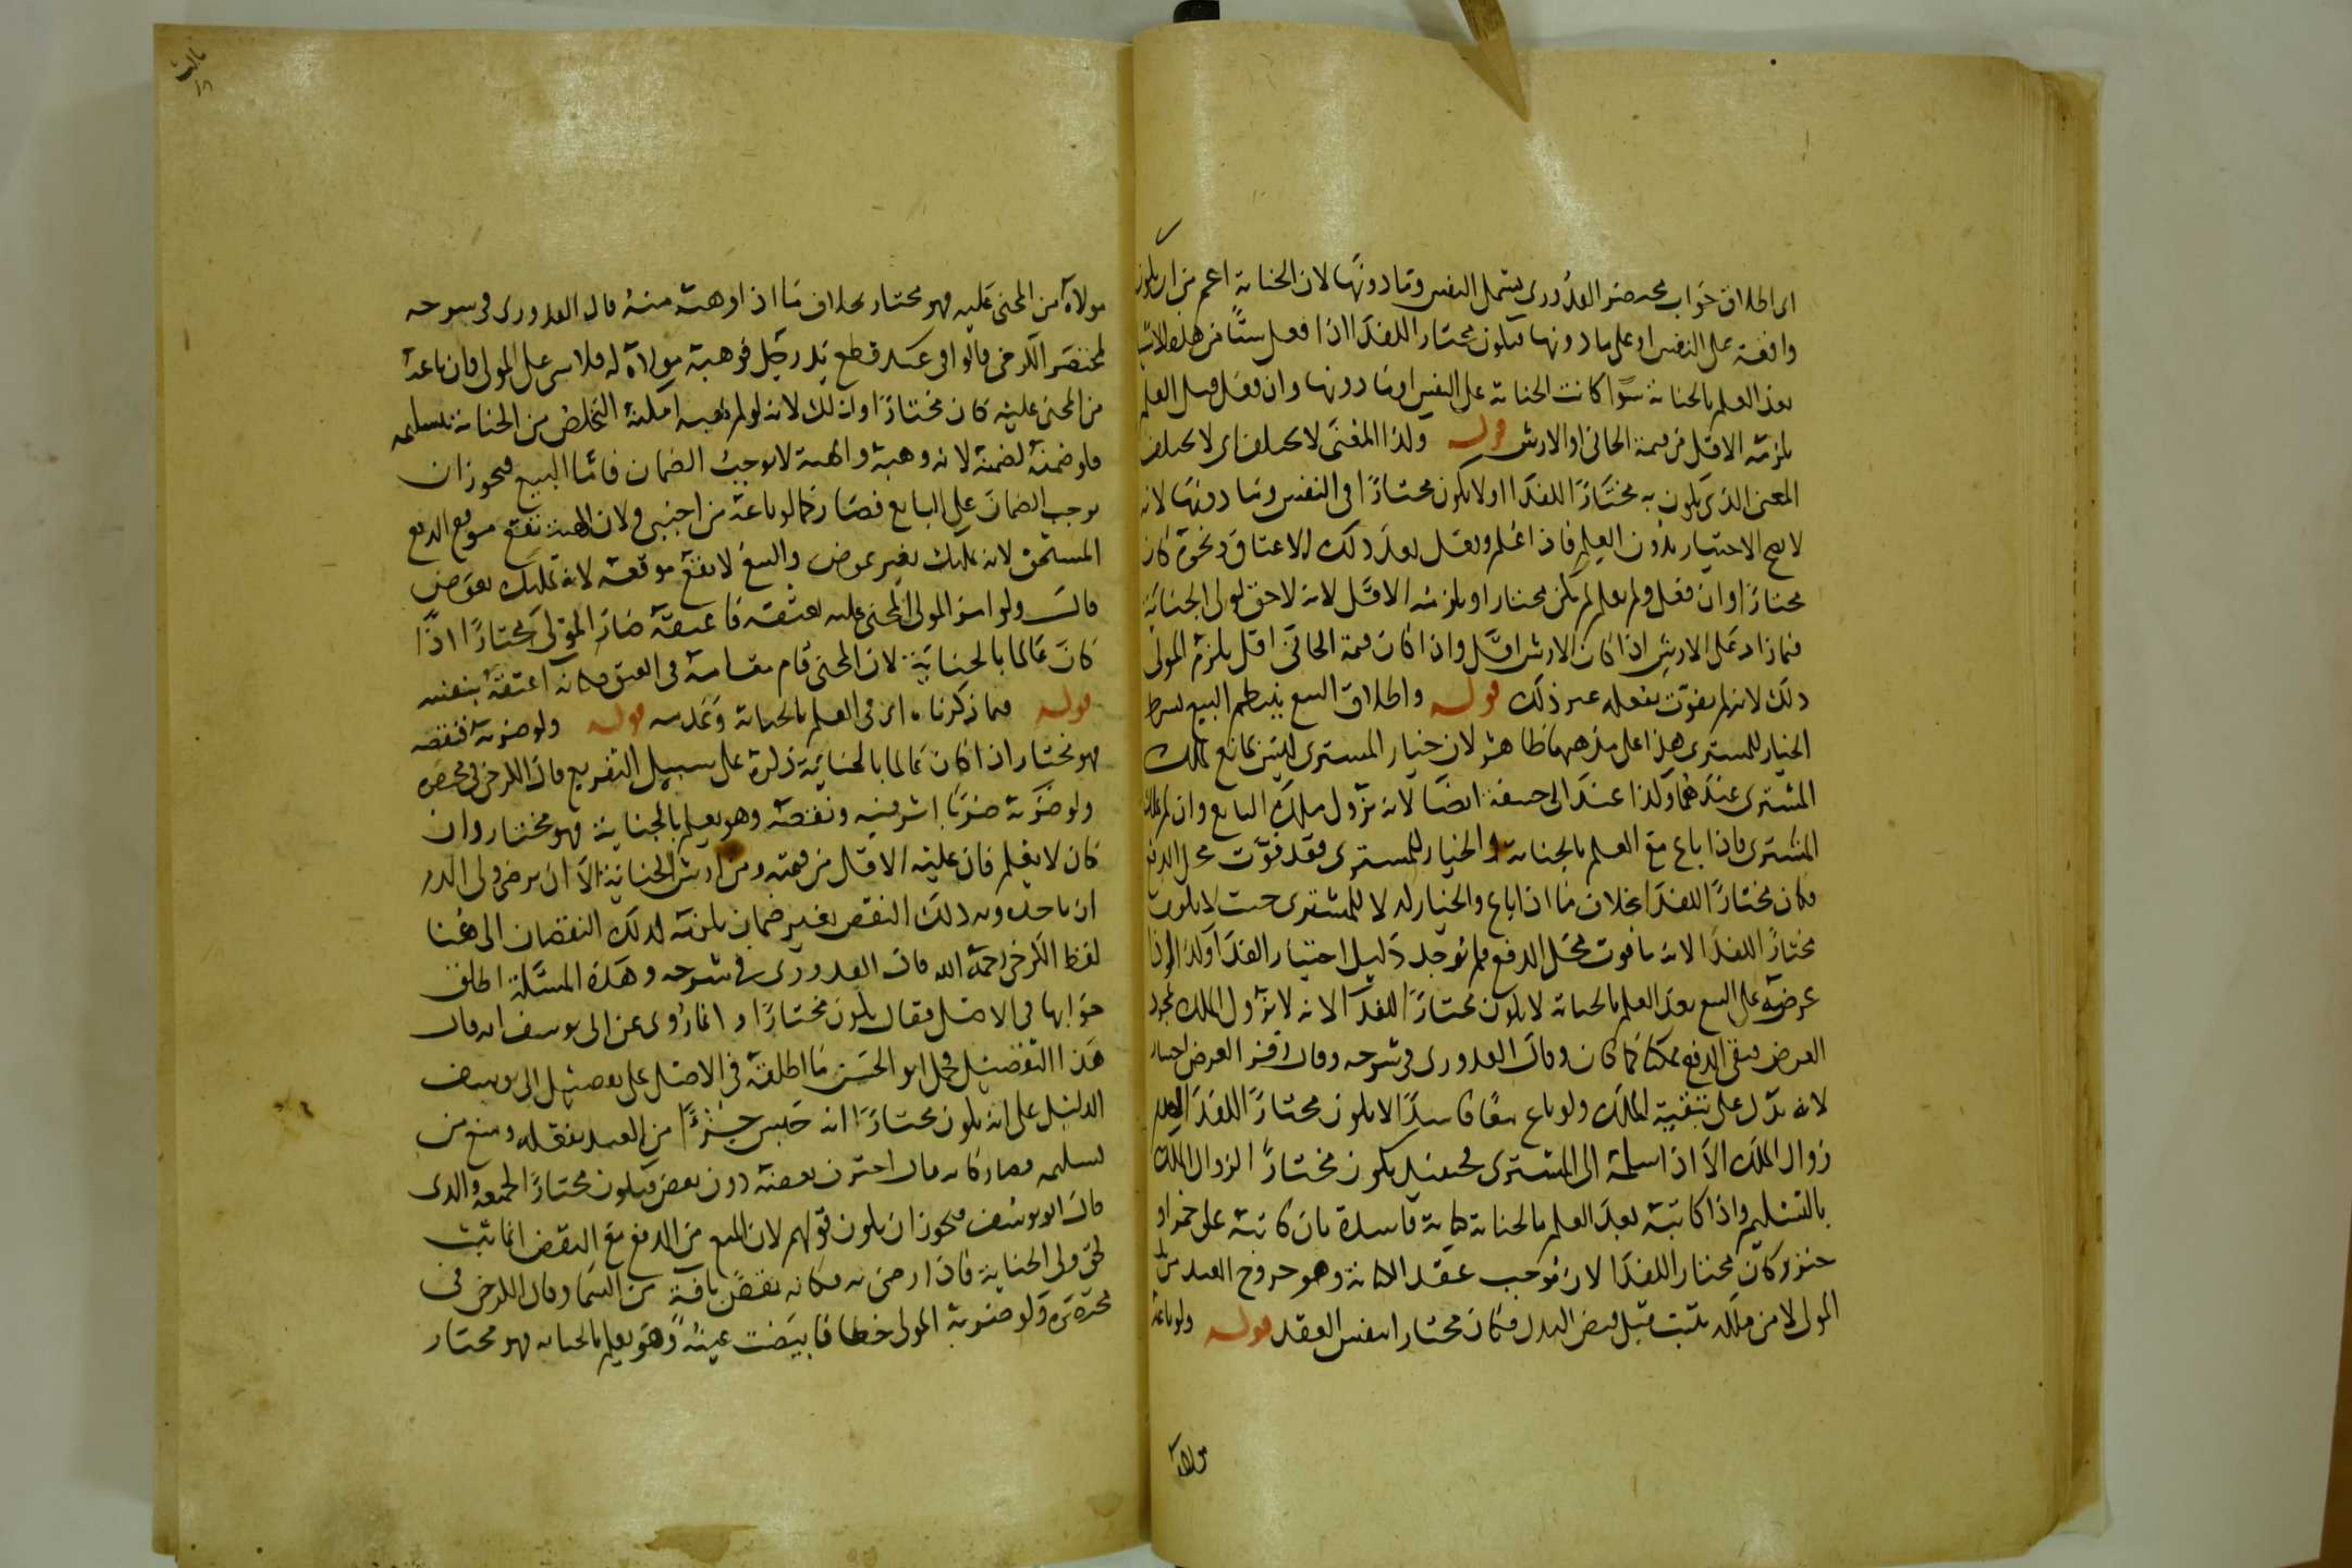 اى اطلاق جواب مختصر القدورى يشمل النفس وما دونها لان الجناية اعم من ان يكون
واقعة على النفس او على ما دونها فيكون مختارا للفدا اذا فعل شيأ من هذه الاشيا
بعد العلم بالجناية سوا كانت الجناية على النفس او ما دونها وان فعل قبل العلم
يلزمه الاقل من قيمة الجانى او الارش قوله ولذا المعنى لا يختلف اى لا يختلف
المعنى الذى يكون به مختارا للفدا او لا يكون مختارا فى النفس وما دونها لانه
لا يصح الاختيار بدون العلم فاذا علم وفعل بعد ذلك الاعتاق ونحوه كان
مختارا وان فعل ولم يعلم لم يكن مختارا ويلزمه الاقل لانه لا حق لولى الجناية
فيما زاد على الارش اذا كان الارش اقل واذا كان قيمة الجانى اقل يلزم المولى
ذلك لانه لم يفوت بفعله غير ذلك قوله واطلاق البيع ينتظم البيع بشرط
الخيار للمشترى هذا على مذهبهما ظاهر لان خيار المشترى ليس بمانع ملك
المشترى عندهما وكذا عند ابى حنيفة ايضا لانه يزول ملك البايع وان لم يملك
المشترى فاذا باع مع العلم بالجناية والخيار للمشترى فقد فوت محل الدفع
فكان مختارا للفدا بخلاف ما اذا باع والخيار له لا للمشترى حيث لا يكون
مختارا للفدا لانه ما فوت محل الدفع فلم يوجد دليل اختيار الفدا وكذا اذا
عرضه على البيع بعد العلم بالجناية لا يكون مختارا للفدا لانه لا يزول الملك بمجرد
العرض فبقى الدفع ممكنا كما كان وقال القدورى فى شرحه وقال زفر العرض اختيار
لانه يدل على تبقية الملك ولو باع بيعا فاسدا لا يكون مختارا للفدا لعدم
زوال الملك الا اذا سلمه الى المشترى فحينئذ يكون مختارا لزوال الملك
بالتسليم واذا كاتبه بعد العلم بالجناية كتابة فاسدة بان كاتبه على خمر او
خنزير كان مختارا للفدا لان موجب عقد الكتابة وهو خروج العبد من يد
المولى لا من ملكه يثبت قبل قبض البدل فكان مختارا بنفس العقد قوله ولو باعه
مولاه
مولاه من المجنى عليه فهو مختار بخلاف ما اذا وهبه منه قال القدورى فى شرحه
لمختصر الكرخى قالوا فى عبد قطع يد رجل فوهبه مولاه له فلا شى على المولى فان باعه
من المجنى عليه كان مختارا وذلك لانه لو لم يهبه امكنه التخلص من الجناية بتسليمه
فلو ضمنه لضمنه لانه وهبه والهبة لا يوجب الضمان فاما البيع فيجوز ان
يوجب الضمان على البايع فصار كما لو باعه من اجنبى ولان الهبة تقع موقع الدفع
المستحق لانه تمليك بغير عوض والبيع لا يقع موقعه لانه تمليك بعوض
قال ولو امر المولى المجنى عليه بعتقه فاعتقه صار المولى مختارا اذا
كان عالما بالجناية لان المجنى قام مقامه فى العتق فكانه اعتقه بنفسه
قوله فيما ذكرنا اى فى العلم بالجناية وعدمه قوله ولو ضربه فنقصه
فهو مختار اذا كان عالما بالجناية ذكره على سبيل التفريع قال الكرخى فى مختصره
ولو ضربه ضربا اثر فيه ونقصه وهو يعلم بالجناية فهو مختار وان
كان لا يعلم فان عليه الاقل من قيمته ومن ارش الجناية الا ان يرضى ولى الدم
ان ياخذه وبه ذلك النقص بغير ضمان يلزمه لذلك النقصان الى هنا
لفظ الكرخى رحمه الله قال القدورى فى شرحه وهذه المسئلة اطلق
جوابها فى الاصل فقال يكون مختارا وانما روى عن ابى يوسف انه قال
هذا التفصيل فحمل ابو الحسن ما اطلقه فى الاصل على تفصيل ابى يوسف
الدليل على انه يكون مختارا انه حبس جزءا من العبد بفعله ومنع من
تسليمه فصار كانه قال اخترت بعضه دون بعض فيكون مختارا لجميعه والذى
قال ابو يوسف فيجوز ان يكون قولهم لان المنع من الدفع مع النقص انما يثبت
لحق ولى الجناية فاذا رضى به فكانه نقص بافة من السما وقال الكرخى فى
مختصره ولو ضربه المولى خطا فابيضت عينه وهو يعلم بالجناية فهو مختار